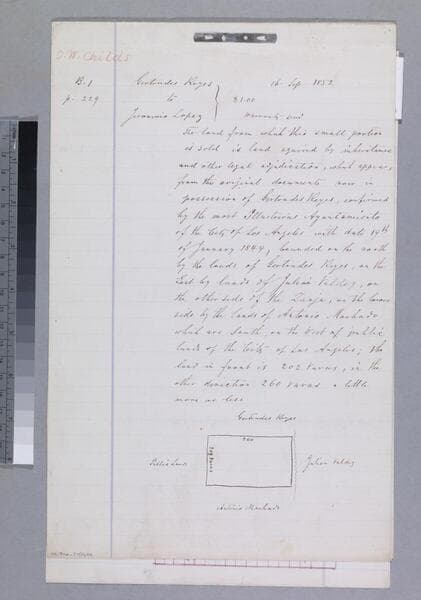 O. W. Childs
B. 1 Gertrudes Reyes 16 Sep 1852
p. 229 to 31.00
Jeronimo Lopez
The land from what this small portion
is sold is land aquired by inheritance
and other legal adjudication, what appears
from the original documents now in
possession of Gertrudes Reyes, confirmed
by the most Illustrious Ayuntamiento
of the City of Los Angeles with date 19th
of January 1844, bounded on the north
by the lands of Gertrudes Reyes, on the
East by lands of Julian Valdez, on
the other side of the Zanja, on the lower
side by the lands of Antonio Machado
what are South, on the West of public
lands of the City of Los Angeles; the
land in front is 202 varas, in the
other direction 260 varas a little
more or less
Gertrudes Reyes
260
Public Land Julian Valdez
Antonio Machado